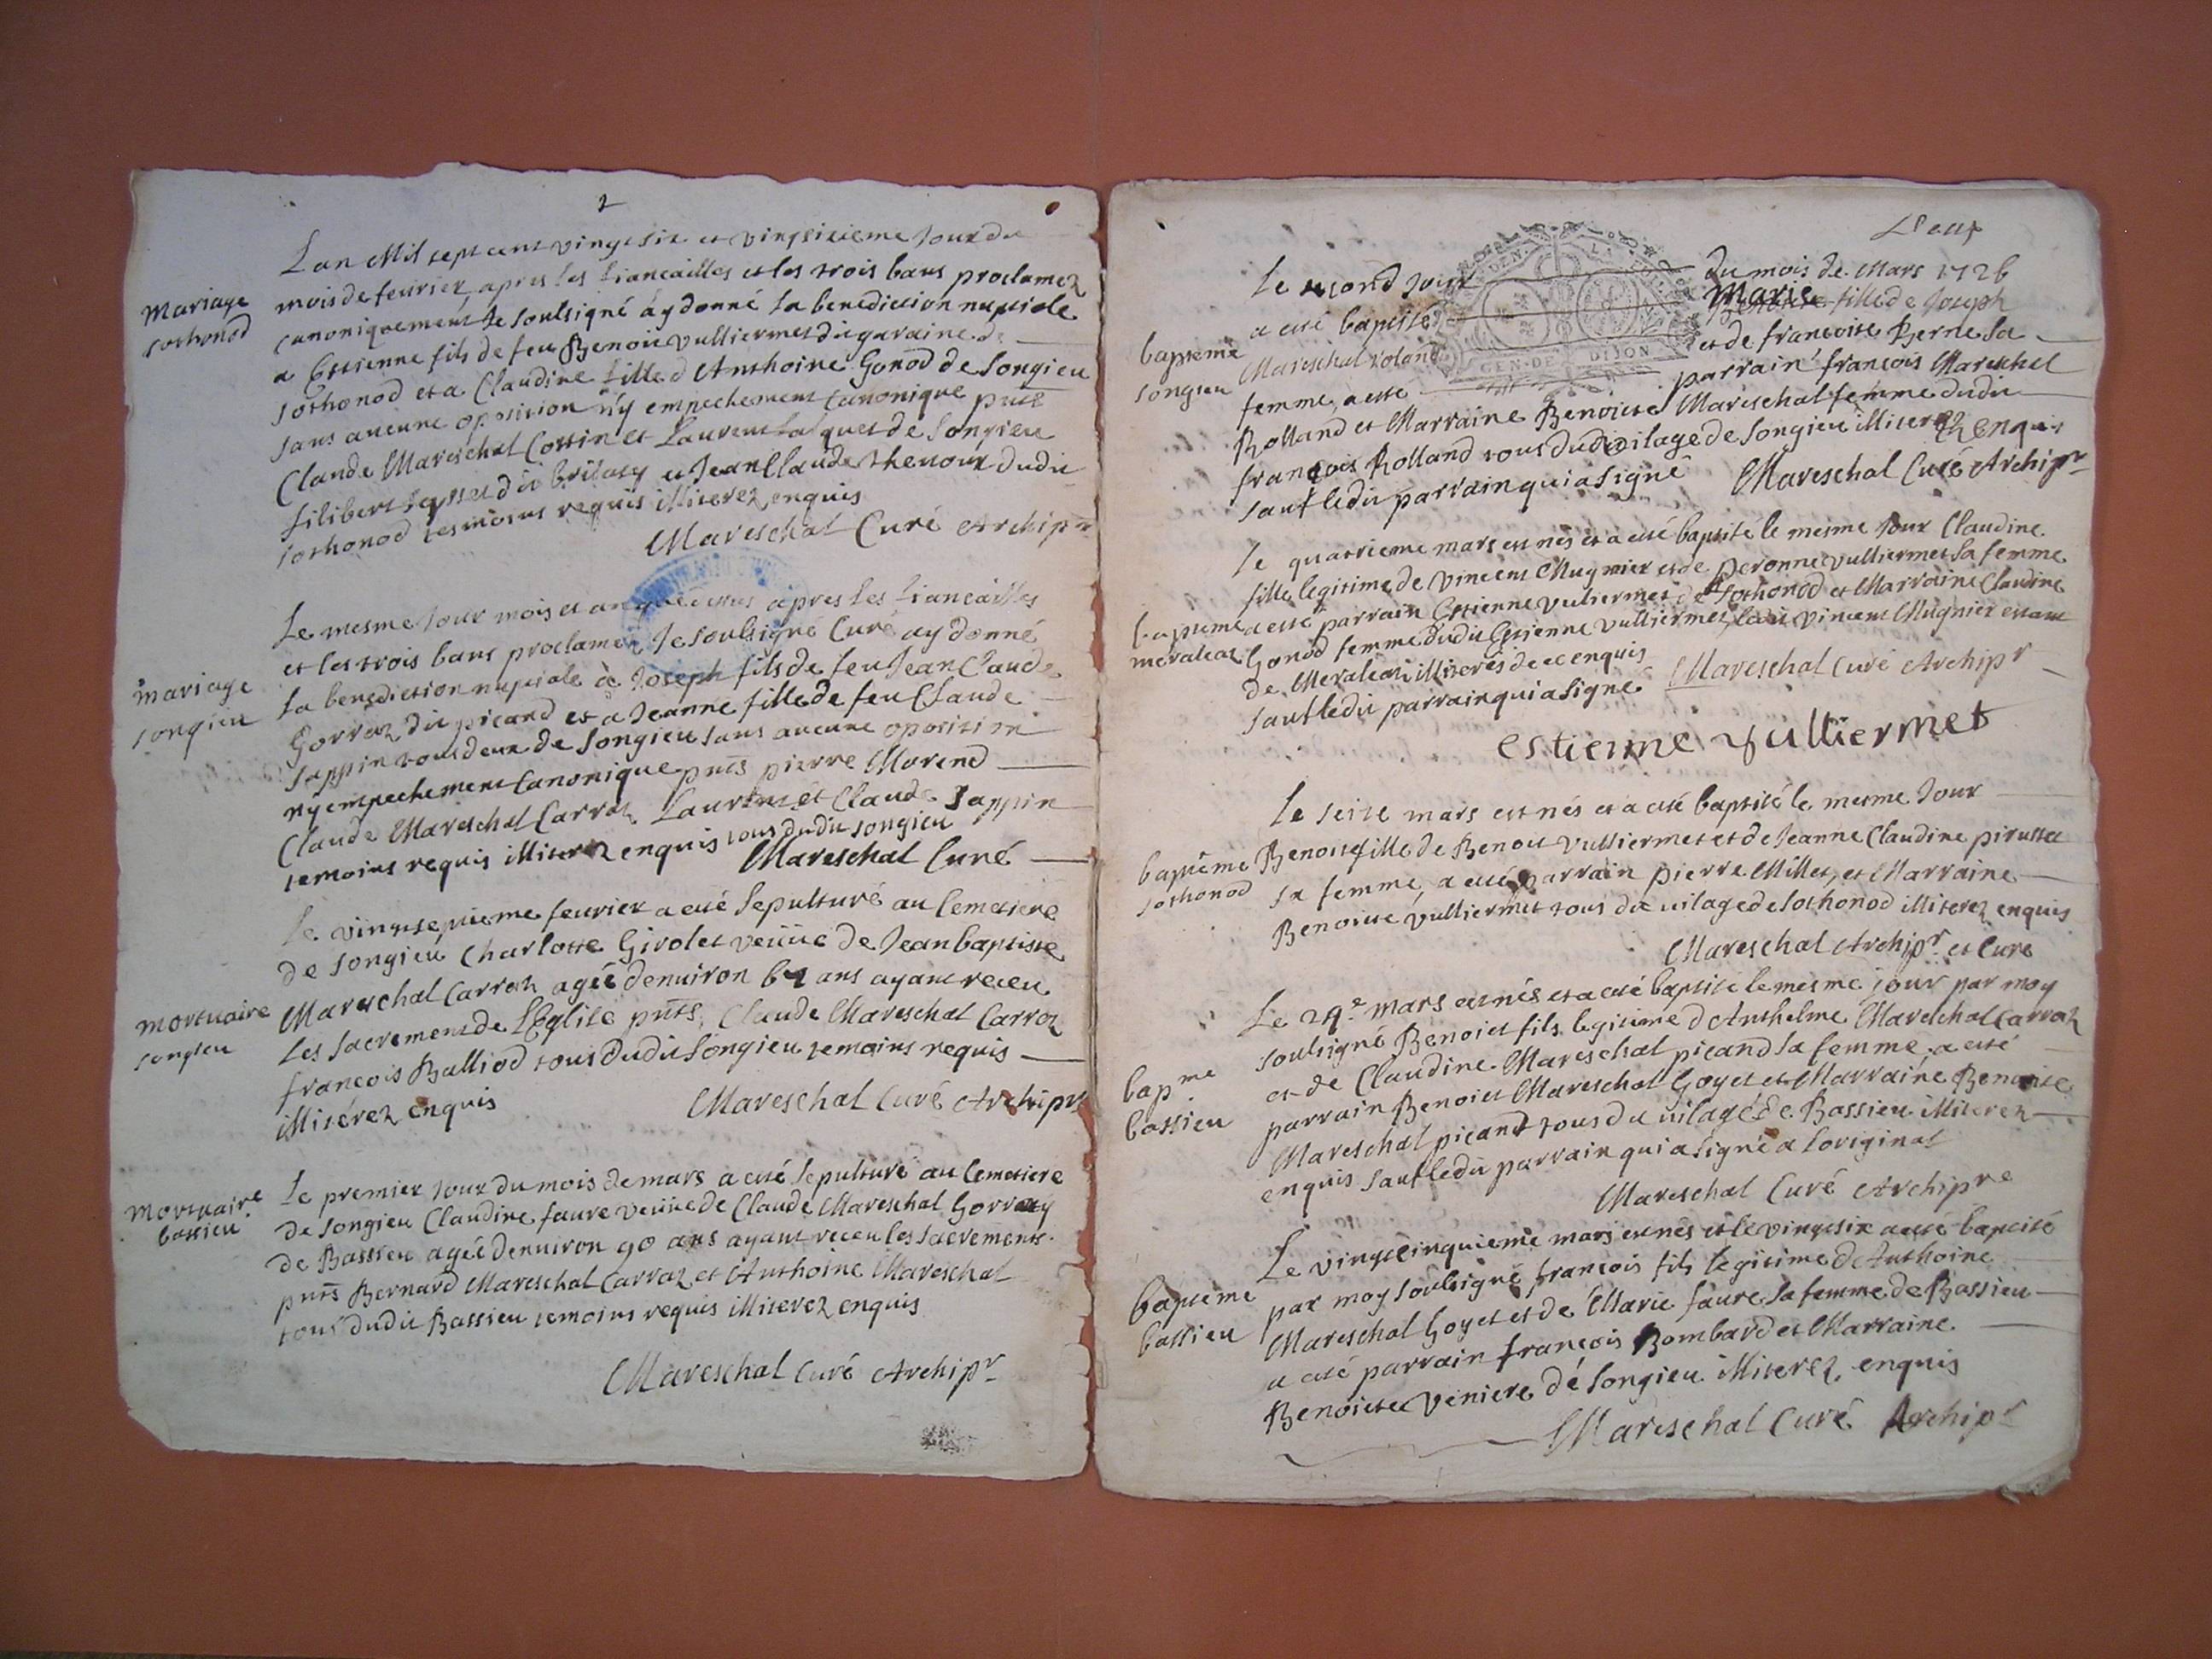 2
Lan Mil sept cent vingt six et vingtsixieme Jour du
mois de feurier apres les fiancailles et les trois bans proclamez
Mariage
sothonod
canoniquement Je soulsigné ay donné la benediction nuptiale
a Estienne fils de feu Benoit vulliermet du
sothonod et a Claudine fille d Anthoine Gonod de Songieu
sans aucune oposition n'y empechement Canonique pnts
Claude Mareschal Cottin et Laurent de Songieu
filibert dit et Jean Claude thenour dudit
sothonod tesmoins requis illiterez enquis
Mareschal Curé Archipr
Le mesme Jour mois et an apres les fiancailles
et les trois bans proclamez Je soulsigné Curé ay donné
Mariage
songieu
la benediction nuptiale à Joseph fils de feu Jean Claude
Gorraz dit picard et a Jeanne fille de feu Claude
Jappin tous deux de Songieu sans aucune oposition
ny empechement Canonique pnts pierre Morend
Claude Mareschal Carraz Laurent et Claude Jappin
temoins requis illiterez enquis tous dudit songieu
Mareschal Curé
Le vingtseptieme feurier a esté Sepulturé au Cemetiere
de Songieu Charlotte Girolet veüue de Jean baptiste
Mortuaire
songieu
Mareschal Carraz agée denuiron ans ayant receu
Les Sacrement de LEglise pnts, Claude Mareschal Carroz
francois Balliod tous dudit Songieu temoins requis
illiterez enquis
Mareschal Curé Archipr
Mortuaire
bassieu
Le premier Jour du mois de mars a esté Sepulturé au Cemetiere
de Songieu Claudine faure veüue de Claude Mareschal
de Bassieu agée denuiron 90 ans ayant receu les Sacrements
pnts Bernard Mareschal Carraz et Anthoine Mareschal
tous dudit Bassieu temoins requis illiterez enquis
Mareschal Curé Archipr
Deux
Le second Jour du mois de Mars 1726
a esté baptisé Marie fille de Joseph
bapteme
songieu
Mareschal roland et de francoise Berne sa
GEN. DE DIJON
femme, a esté parrain francois Mareschal
Rolland et Marraine Benoiste Mareschal femme dudit
francois Rolland tous dudit vilage de Songieu illiterez enquis
sauf ledit parrain qui a signé Mareschal Curé Archipr
Le quatrieme mars est nés et a esté baptisé le mesme Jour Claudine
fille legitime de vincent Mugnier et de peronne vulliermet sa femme
bapteme
meraleaz
a esté parrain Estienne vulliermet de Sothonod et Marraine Claudine
Gonod femme dudit Estienne vulliermet, ledit vincent Mugnier estant
de Meraleaz illiterés de ce enquis
sauf ledit parrain qui a signé Mareschal Curé Archipr
estienne vulliermet
Le seize mars est nés et a esté baptisé le mesme Jour
bapteme
sothonod
Benoiste fille de Benoit vulliermet et de Jeanne Claudine
sa femme, a esté parrain pierre Millet, et Marraine
Benoiste vulliermet tous du vilage de Sothonod illiterez enquis
Mareschal Archipr et Curé
Le 24e mars est nés et a esté baptisé le mesme jour par moy
soulsigné Benoict fils legitime d Anthelme Mareschal Carraz
bapme
bassieu
et de Claudine Mareschal picand sa femme a esté
parrain Benoict Mareschal Goyet et Marraine Benoiste
Mareschal picand tous du vilage de Bassieu illiterez
enquis sauf ledit parrain qui a signé a loriginal
Mareschal Curé Archipre
Le vingtcinquieme mars est nés et le vingtsix a esté baptisé
bapteme
bassieu
par moy soulsigné francois fils legitime de Anthoine
Mareschal Goyet et de Marie faure sa femme de Bassieu
a esté parrain francois Bombard et Marraine
Benoiste veniere de Songieu illiterez enquis
Mareschal Curé Archipr